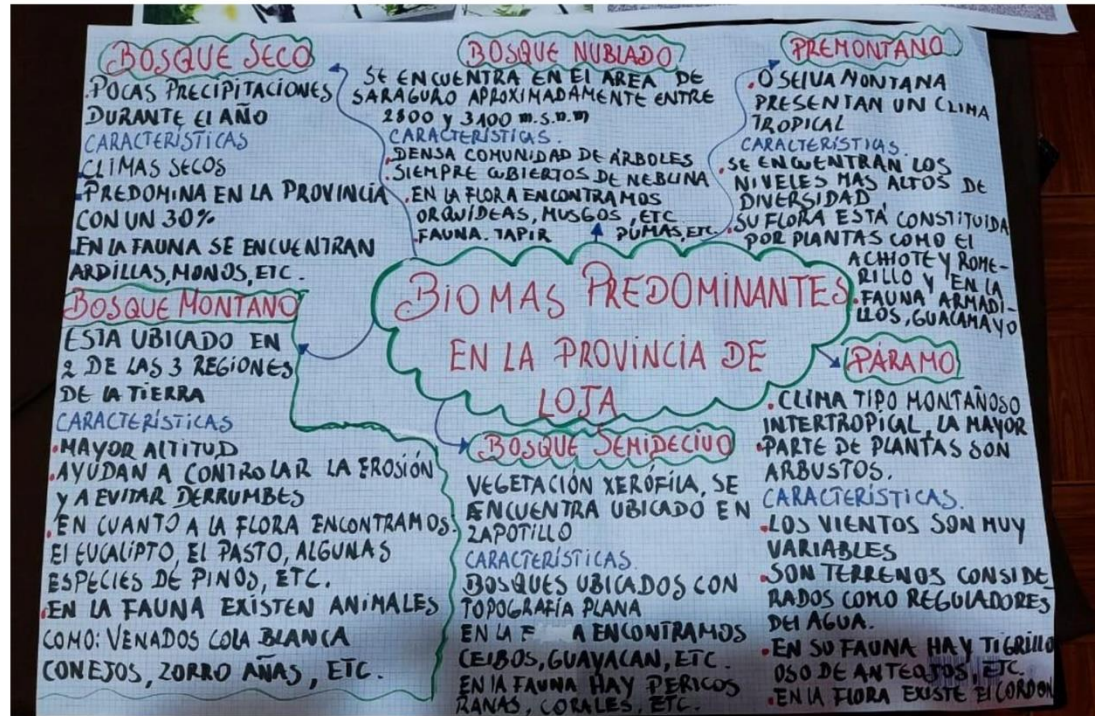 BOSQUE SECO
.POCAS PRECIPITACIONES
DURANTE El AÑO
CARACTERÍSTICAS
.CLIMAS SECOS
.PREDOMINA EN LA PROVINCIA
CON UN 30%
.EN lA FAUNA SE ENCUENTRAN
ARDILLAS, MONOS, ETC.
BOSQUE NUBLADO
SE ENCUENTRA EN El AREA DE
SARAGURO APROXIMADAMENTE ENTRE
2800 y 3100 m.s.n.m
CARACTERÍSTICAS.
.DENSA COMUNIDAD DE ÁRBOLES
.SIEMPRE CUBIERTOS DE NEBLINA
.EN LA FLORA ENCONTRAMOS
ORQUÍDEAS, MUSGOS, ETC
.FAUNA. TAPIR PUMAS, ETC.
PREMONTANO
.O SElVA MONTANA
PRESENTAN UN CLIMA
TROPICAL
CARACTERÍSTICAS.
.SE ENCUENTRAN LOS
NIVELES MAS ALTOS DE
DIVERSIDAD
.SU FLORA ESTÁ CONSTITUIDA
POR PLANTAS COMO El
ACHIOTE Y ROME-
RILLO Y EN LA
.FAUNA ARMADI-
LLOS, GUACAMAYO
BIOMAS PREDOMINANTES
EN LA PROVINCIA DE
LOJA
BOSQUE MONTANO
ESTA UBICADO EN
2 DE LAS 3 REGIONES
DE lA TIERRA
CARACTERÍSTICAS
.MAYOR AlTITUD
.AYUDAN A CONTROLAR LA EROSIÓN
Y A EVITAR DERRUMBES
.EN CUANTO A LA FLORA ENCONTRAMOS.
El EUCALIPTO, EL PASTO, ALGUNAS
ESPECIES DE PINOS, ETC.
.EN LA FAUNA EXISTEN ANIMALES
COMO: VENADOS COLA BLANCA
CONEJOS, ZORRO AÑAS, ETC.
BOSQUE SEMIDECIUO
VEGETACIÓN XERÓFILA, SE
ENCUENTRA UBICADO EN
ZAPOTILLO
CARACTERÍSTICAS.
BOSQUES UBICADOS CON
TOPOGRAFÍA PLANA
EN LA ENCONTRAMOS
CEIBOS, GUAYACAN, ETC.
EN lA FAUNA HAY PERICOS
RANAS, CORALES, ETC.
PÁRAMO
.CLIMA TIPO MONTAÑOSO
INTERTROPICAL, LA MAYOR
.PARTE DE PLANTAS SON
ARBUSTOS.
CARACTERÍSTICAS.
.LOS VIENTOS SON MUY
VARIABLES
.SON TERRENOS CONSIDE
RADOS COMO REGULADORES
DEl AGUA.
.EN SU FAUNA HAY TIGRILLO
OSO DE ANTEOJOS, ETC.
.EN lA FLORA EXISTE El CORDON